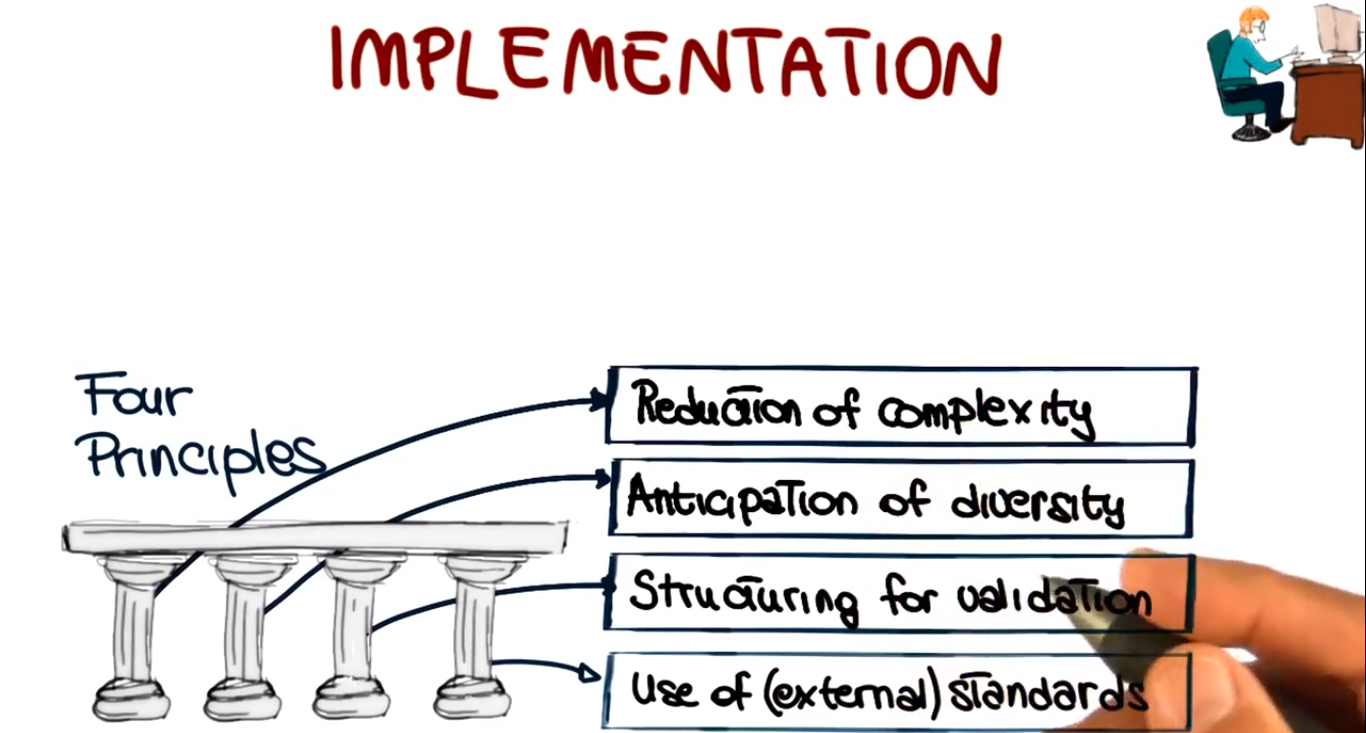 IMPLEMENTATION
Four
Principles
Reduction of complexity
Anticipation of diversity
Structuring for validation
Use of (external) standards